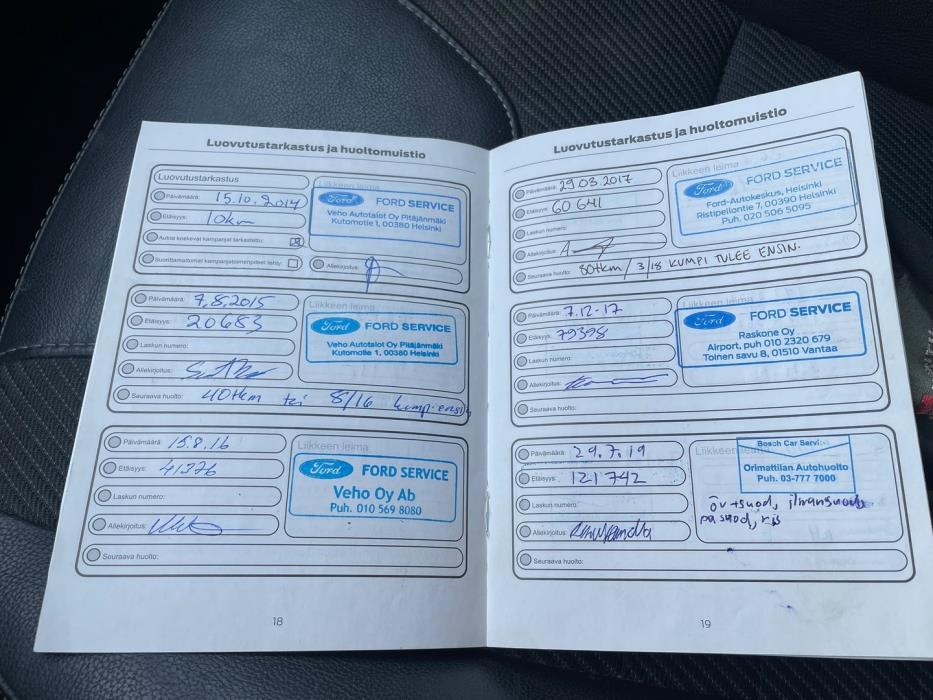 Luovutustarkastus ja huoltomuistio
Luovutustarkastus
Päivämäärä: 15.10.2014
Etäisyys: 10km
Autoa koskevat kampanjat tarkastettu:
Suorittamattomat kampanjatoimenpiteet tehty:
Liikkeen leima
Ford FORD SERVICE
Veho Autotalot Oy Pitäjänmäki
Kutomotie 1, 00380 Helsinki
Allekirjoitus:
Päivämäärä: 7.8.2015
Etäisyys: 20683
Laskun numero:
Allekirjoitus:
Liikkeen leima
Ford FORD SERVICE
Veho Autotalot Oy Pitäjänmäki
Kutomotie 1, 00380 Helsinki
Seuraava huolto: 40tkm tai 8/16 kumpi ensin
Päivämäärä: 15.8.16
Etäisyys: 41376
Laskun numero:
Allekirjoitus:
Liikkeen leima
Ford FORD SERVICE
Veho Oy Ab
Puh. 010 569 8080
Seuraava huolto:
18
Luovutustarkastus ja huoltomuistio
Päivämäärä: 29.03.2017
Etäisyys: 60 641
Laskun numero:
Allekirjoitus:
Liikkeen leima
Ford FORD SERVICE
Ford-Autokeskus, Helsinki
Ristipellontie 7, 00390 Helsinki
Puh. 020 506 5095
Seuraava huolto: 80tkm / 3/18 KUMPI TULEE ENSIN.
Päivämäärä: 7.12-17
Etäisyys: 79398
Laskun numero:
Allekirjoitus:
Liikkeen leima
Ford FORD SERVICE
Raskone Oy
Airport, puh 010 2320 679
Toinen savu 8, 01510 Vantaa
Seuraava huolto:
Päivämäärä: 29.7.19
Etäisyys: 121742
Laskun numero:
Allekirjoitus:
Liikkeen leima
Bosch Car Service
Orimattilan Autohuolto
Puh. 03-777 7000
öv+suod, ilmansuod,
pa suod,
Seuraava huolto:
19